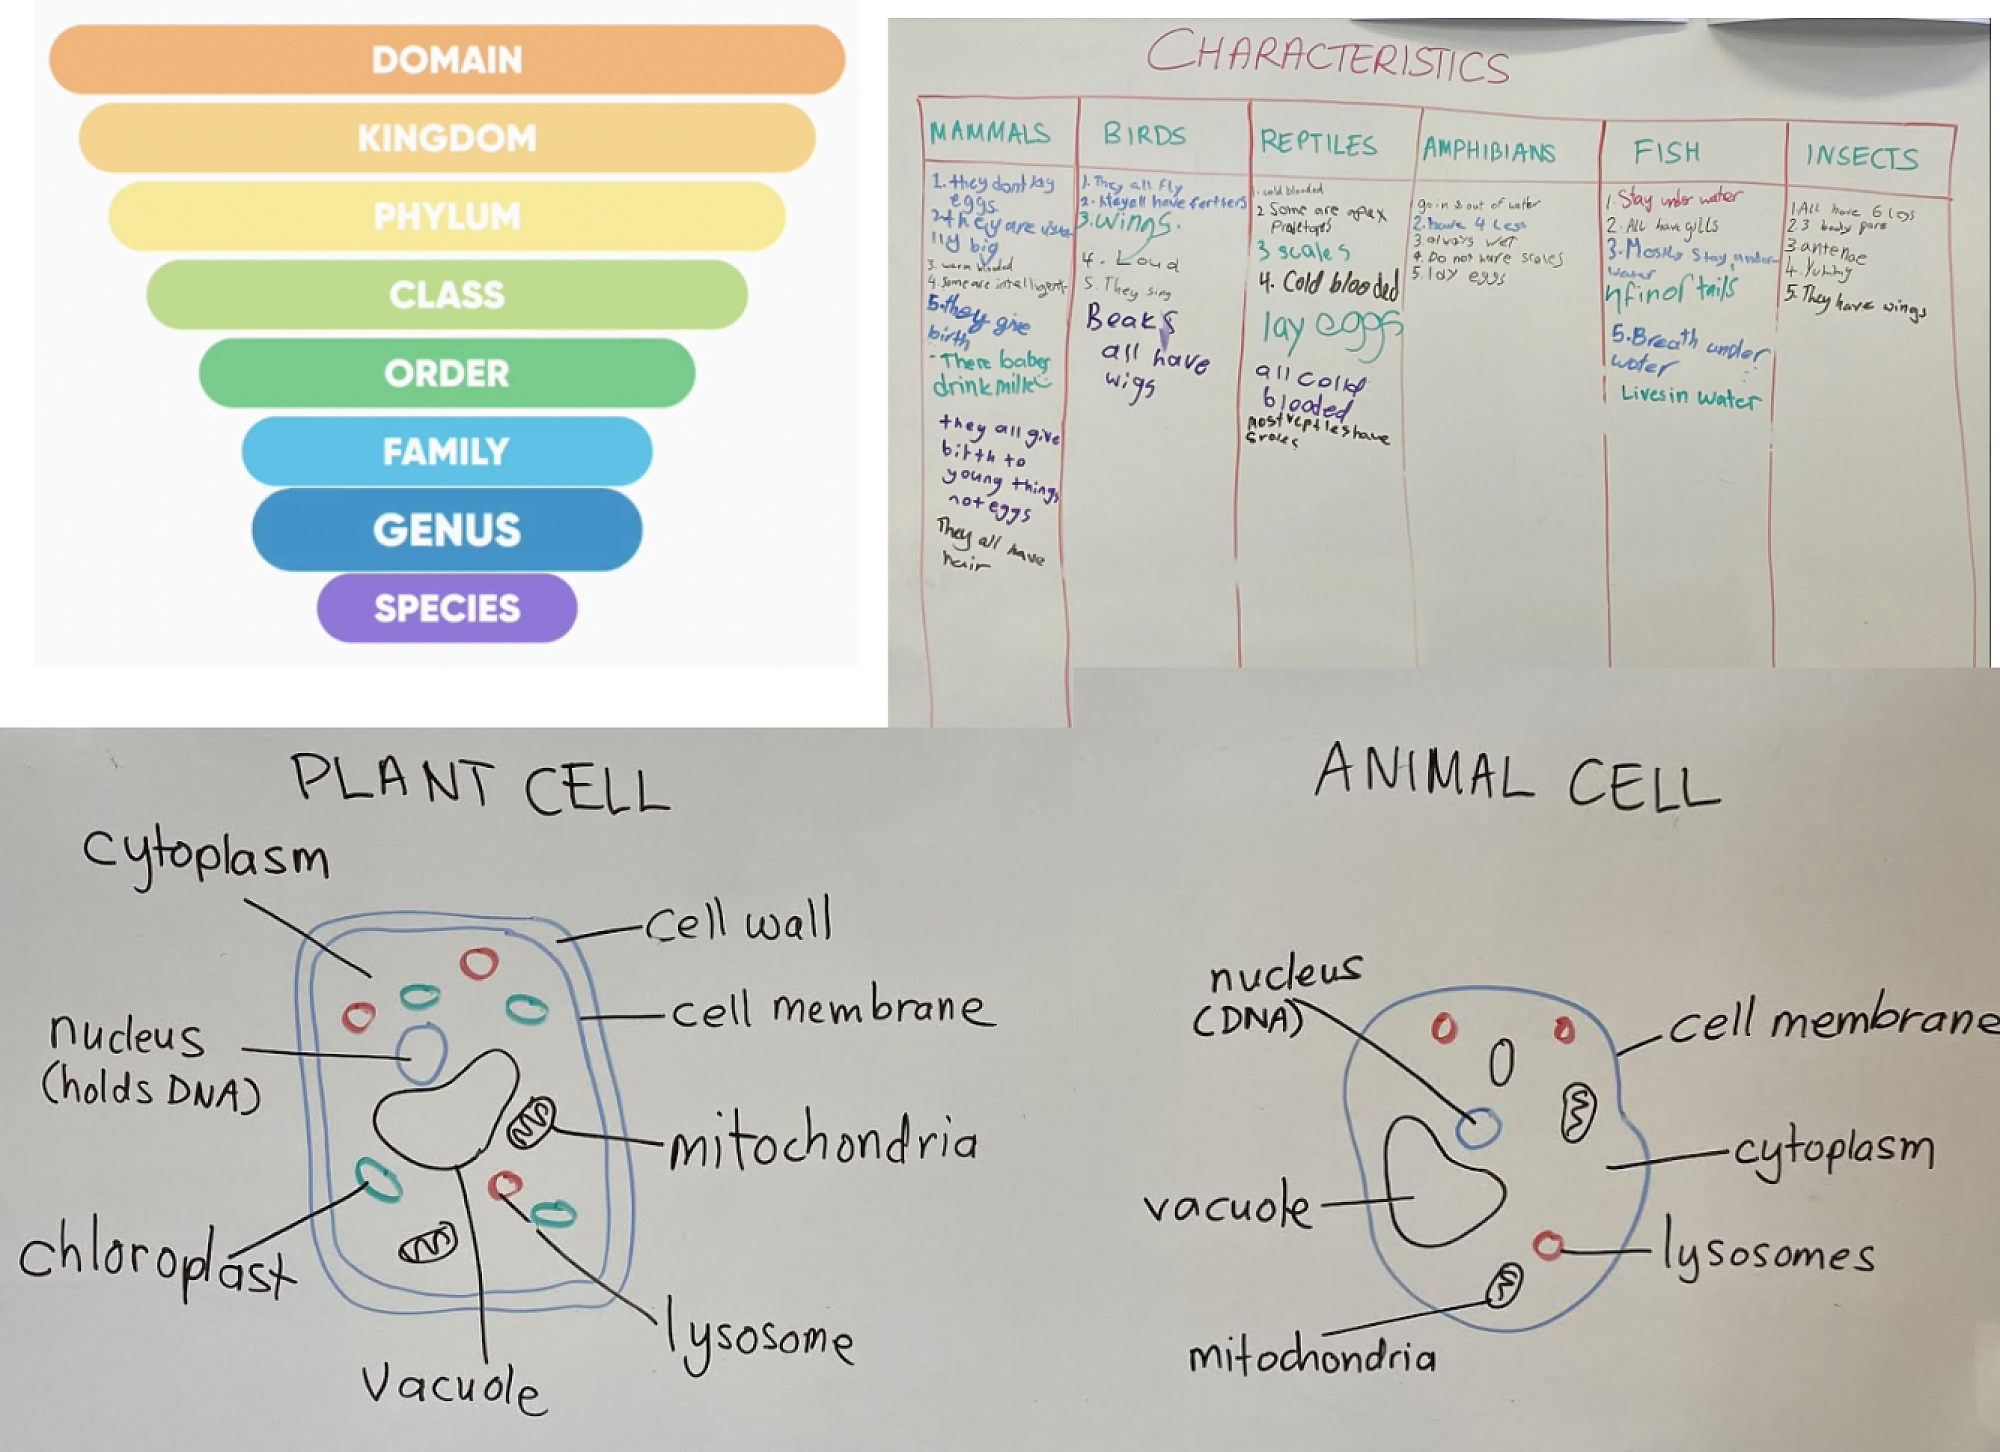 DOMAIN
KINGDOM
PHYLUM
CLASS
ORDER
FAMILY
GENUS
SPECIES
CHARACTERISTICS
MAMMALS
1. they dont lay
eggs
2. they are usua
lly big
3. warm blooded
4. Some are intelligent
5. they give
birth
- There babes
drink milk
they all give
birth to
young things
not eggs
They all have
hair
BIRDS
1. They all fly
2. they all have ferthers
3. wings.
4. Loud
5. They sing
Beaks
all have
wigs
REPTILES
1. cold blooded
2 Some are apex
3 scales
4. Cold blooded
lay eggs
all colld
blooded
most reptiles have
AMPHIBIANS
go in & out of water
2. have 4 legs
3. always wet
4. Do not have scales
5. lay eggs
FISH
1. Stay under water
2. All have gills
3. Mostly stay under
water
4 fin of tails
5. Breath under
water
Lives in water
INSECTS
1 All have 6 legs
2. 3 body pars
3 antenae
4. Yummy
5. They have wings
PLANT CELL
cytoplasm
cell wall
cell membrane
nucleus
(holds DNA)
mitochondria
chloroplast
lysosome
vacuole
ANIMAL CELL
nucleus
(DNA)
cell membrane
cytoplasm
vacuole
lysosomes
mitochondria